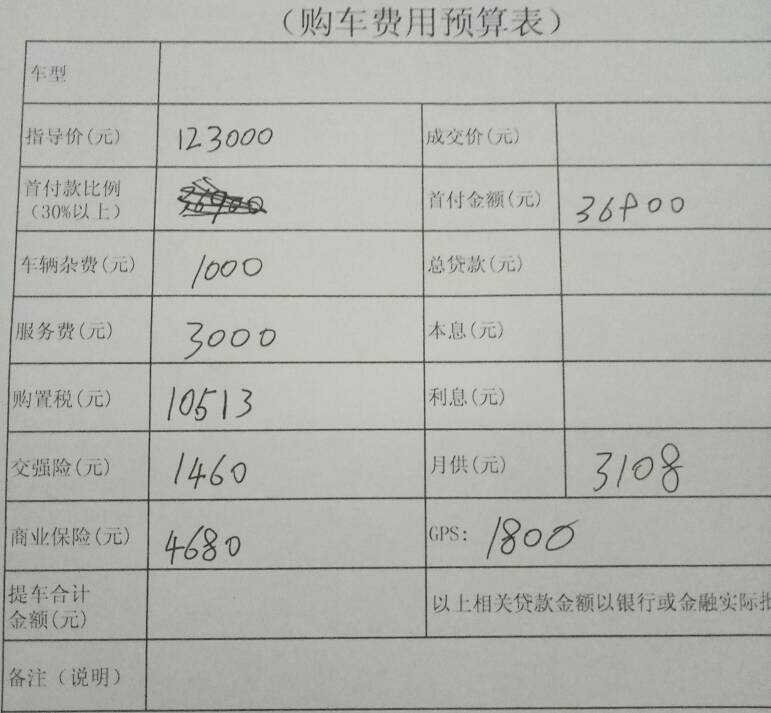 （购车费用预算表）
车型
指导价(元) 123000 成交价(元)
首付款比例
（30%以上） 首付金额(元) 36900
车辆杂费(元) 1000 总贷款(元)
服务费(元) 3000 本息(元)
购置税(元) 10513 利息(元)
交强险(元) 1460 月供(元) 3108
商业保险(元) 4680 GPS: 1800
提车合计
金额(元) 以上相关贷款金额以银行或金融实际
备注（说明）